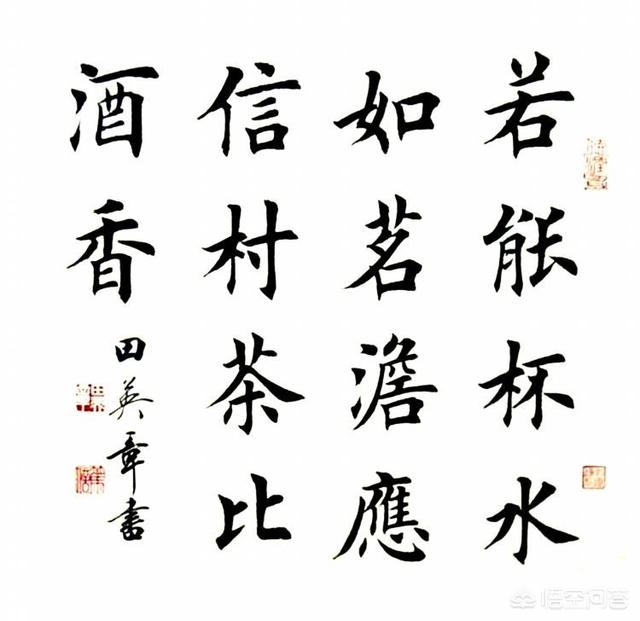 若能杯水
如茗澹應
信村茶比
酒香
田英章書
悟空问答